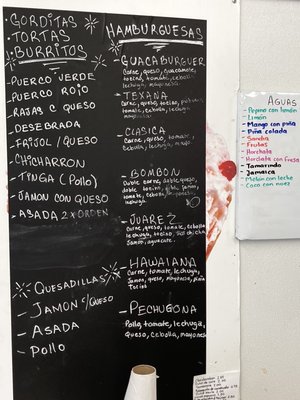 GORDITAS
TORTAS
BURRITOS
- PUERCO VERDE
- PUERCO ROJO
- RAJAS C QUESO
- DESEBRADA
- FRIJOL / QUESO
- CHICHARRON
- TINGA (Pollo)
- JAMON CON QUESO
- ASADA 2 X ORDEN
QUESADILLAS
- JAMON C/QUESO
- ASADA
- Pollo
HAMBURGUESAS
- GUACABURGUER
Carne, queso, guacamole,
tocino, tomate, cebolla
lechuga, mayonesa
- TEXANA
Carne, queso, tocino,
tomate, cebolla,
lechuga, mayonesa
- CLASICA
Carne, queso, tomate,
cebolla, lechuga, mayo
- BOMBON
Doble carne, doble queso,
doble tocino, piña, jamon,
tomate, cebolla,
lechuga
- JUAREZ
Carne, queso, tomate, cebolla
lechuga, tocino, salchicha
Jamon, aguacate.
- HAWAIANA
Carne, tomate, lechuga,
Jamon, queso, mayonesa, piña
Tocino
- PECHUGONA
Pollo, tomate, lechuga,
queso, cebolla, mayonesa
AGUAS
- Pepino con limón
- Limón
- Mango con piña
- Piña colada
- Sandia
- Frutas
- Horchata
- Horchata con Fresa
- Tamarindo
- Jamaica
- Melón con leche
- Coco con nuez